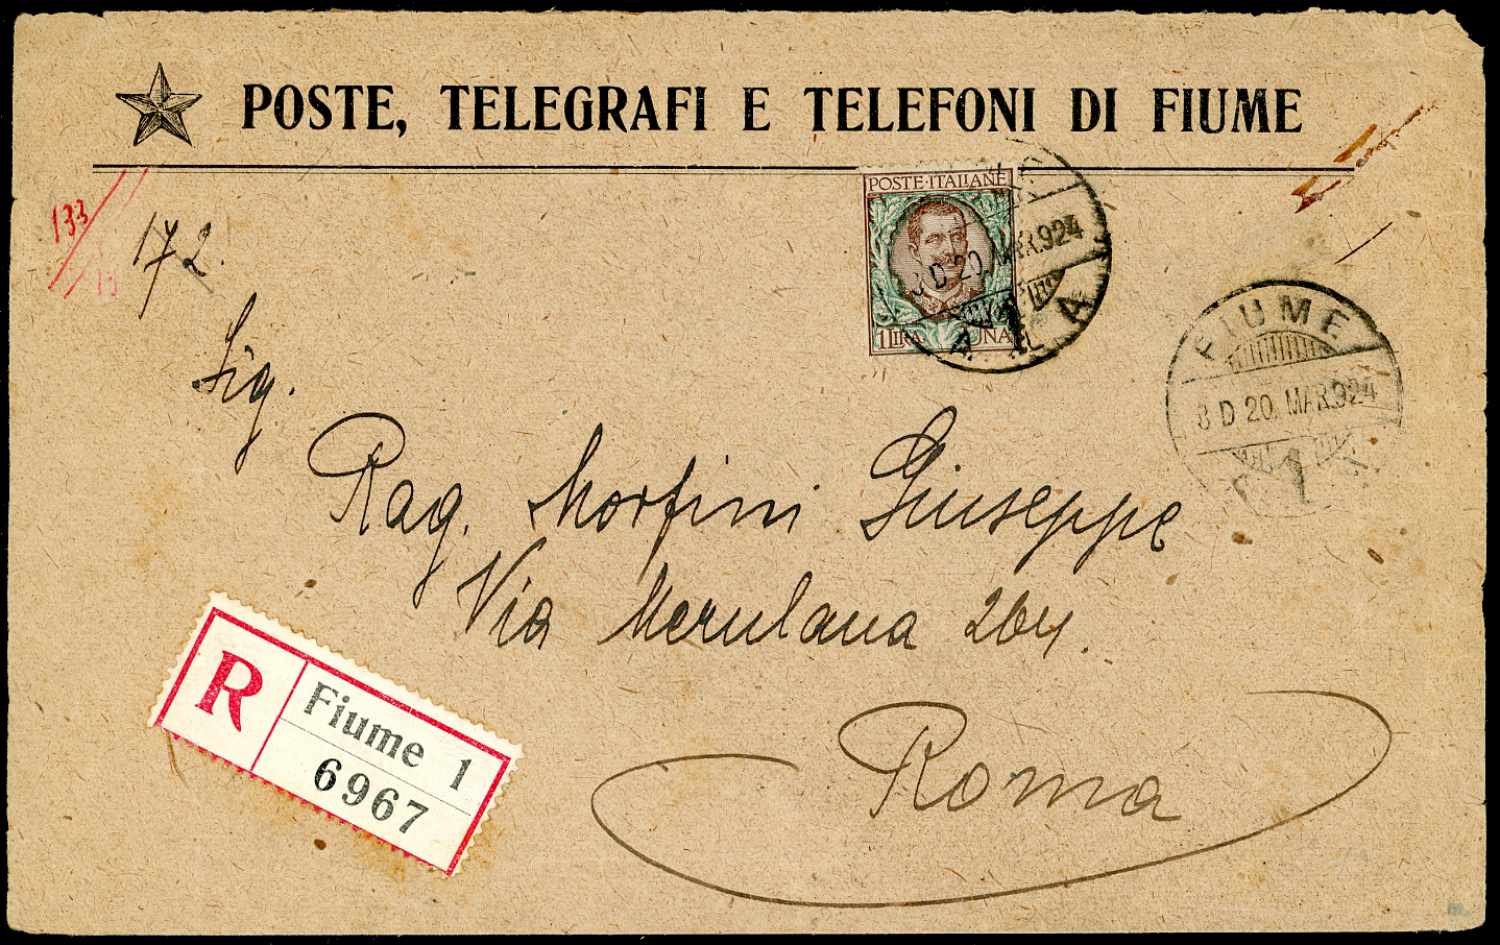 POSTE, TELEGRAFI E TELEFONI DI FIUME
133
172.
POSTE·ITALIANE
1 LIRA UNA
8 D 20. MAR.924
FIUME
8 D 20. MAR.924
1
Sig.
Rag. Morfini Giuseppe
Via Merulana 264.
Roma
R
Fiume 1
6967